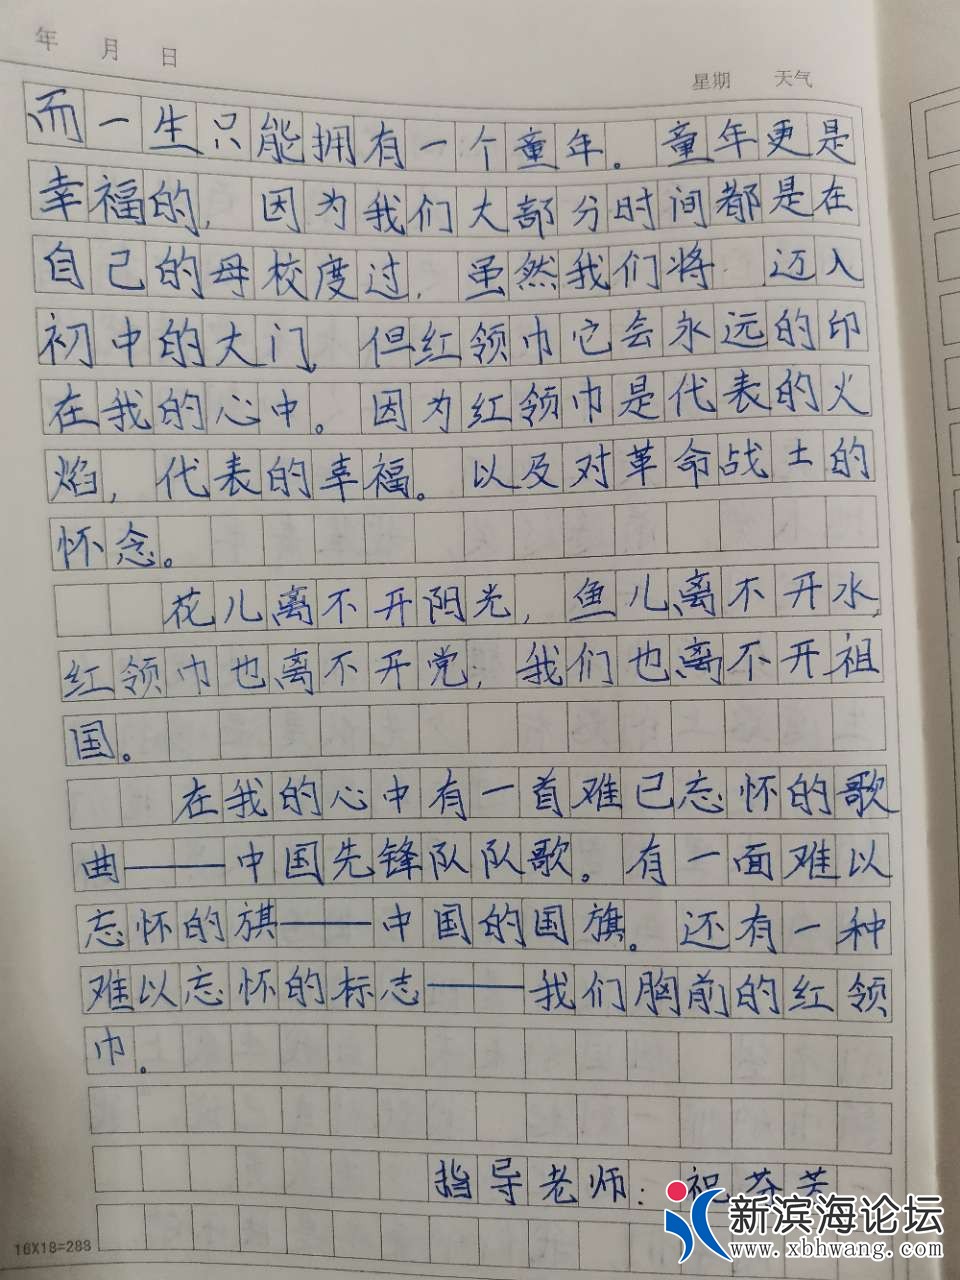 年 月 日
星期 天气
而一生只能拥有一个童年。童年更是
幸福的，因为我们大部分时间都是在
自己的母校度过，虽然我们将 迈入
初中的大门，但红领巾它会永远的印
在我的心中。因为红领巾是代表的火
焰，代表的幸福。以及对革命战士的
怀念。
花儿离不开阳光，鱼儿离不开水，
红领巾也离不开党；我们也离不开祖
国。
在我的心中有一首难已忘怀的歌
曲——中国先锋队队歌。有一面难以
忘怀的旗——中国的国旗。还有一种
难以忘怀的标志——我们胸前的红领
巾。
指导老师：祝芬芳
16X18=288
新滨海论坛
www.xbhwang.com